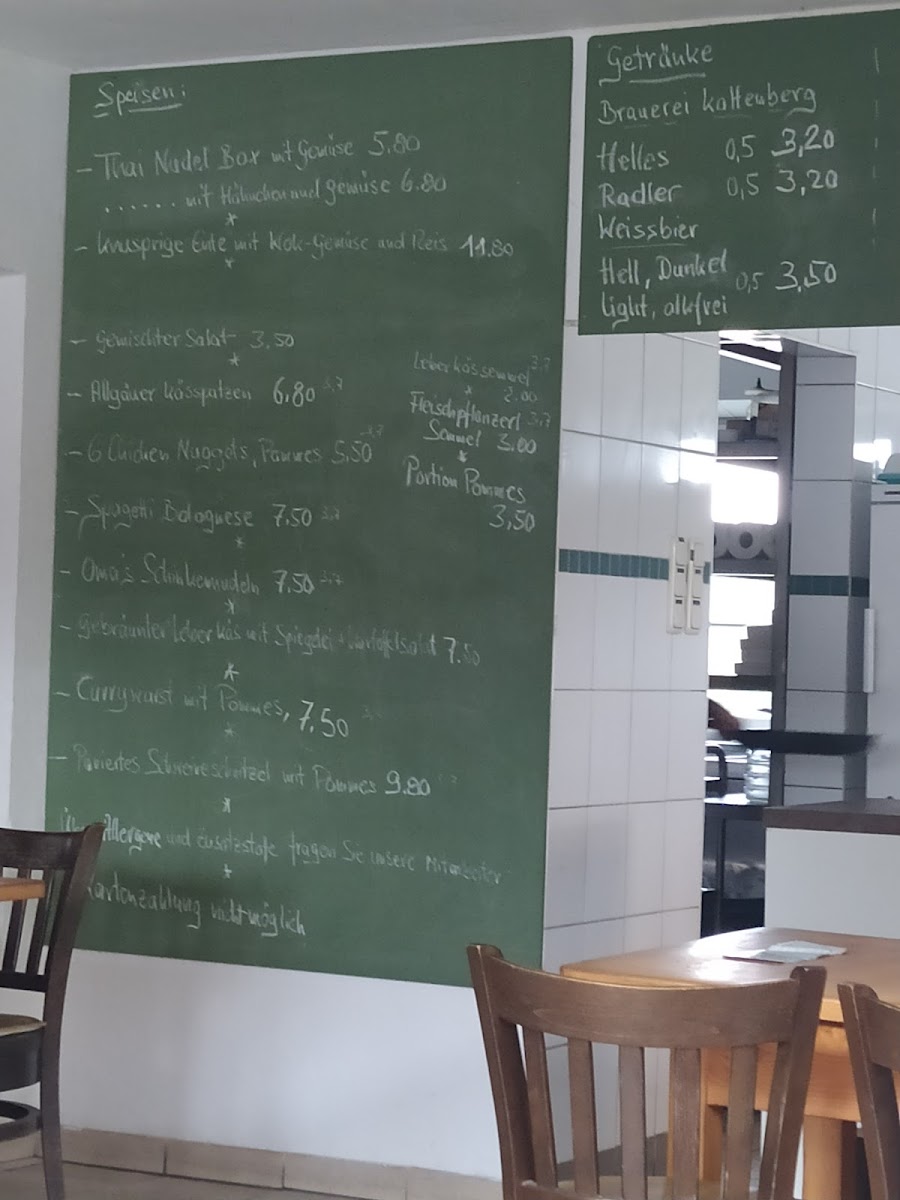 Speisen:
- Thai Nudel Box mit Gemüse 5.80
...... mit Hähnchen und gemüse 6.80
*
- knusprige Ente mit Wok-Gemüse und Reis 11.80
*
- gemischter Salat 3,50
*
- Allgäuer kässpatzen 6,80 3,7
- 6 Chicken Nuggets, Pommes 5,50
- Spagetti Bolognese 7,50 3,7
*
- Oma's Schinkennudeln 7,50 3,7
*
- gebräunter Leberkäs mit Spiegelei + Kartoffelsalat 7.50
*
- Currywurst mit Pommes, 7,50
*
- Paniertes Schweineschnitzel mit Pommes 9.80
*
Allergene und Zusatzstoffe fragen Sie unsere Mitarbeiter
*
Kartenzahlung nicht möglich
Leberkässemmel 3,7
*
2.00
Fleischpflanzerl 3,7
Semmel 3.00
*
Portion Pommes
3,50
Getränke
Brauerei kaltenberg
Helles 0,5 3,20
Radler 0,5 3,20
Weissbier
Hell, Dunkel 0,5 3,50
light, alkfrei